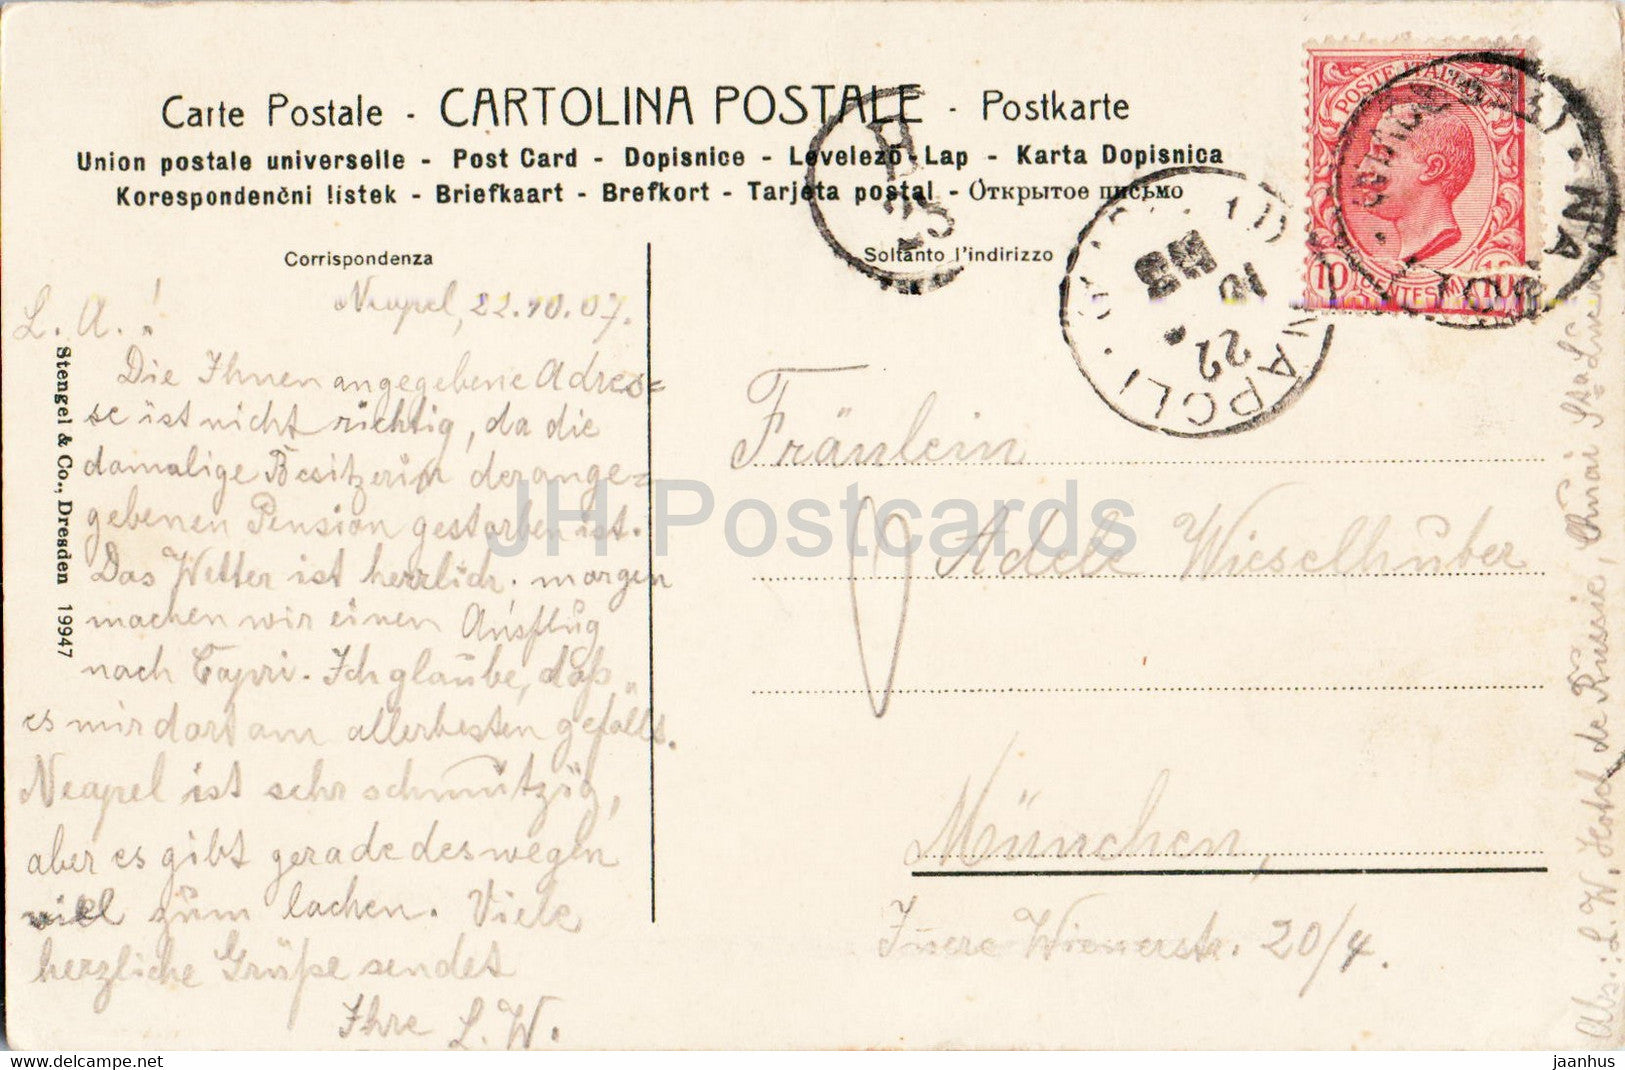 Carte Postale - CARTOLINA POSTALE - Postkarte
Union postale universelle - Post Card - Dopisnice - Levelezö-Lap - Karta Dopisnica
Korespondenčni listek - Briefkaart - Brefkort - Tarjeta postal - Открытое письмо
Corrispondenza
Soltanto l'indirizzo
POSTE ITALIANE
10
CENTESIMI 10
NAPOLI
22
10
Neapel, 22.10.07.
L. A.!
Die Ihnen angegebene Adres=
se ist nicht richtig, da die
damalige Besitzerin der ange=
gebenen Pension gestorben ist.
Das Wetter ist herrlich. morgen
machen wir einen Ausflug
nach Capri. Ich glaube, daß
es mir dort am allerbesten gefällt.
Neapel ist sehr schmutzig,
aber es gibt gerade deswegen
viel zum lachen. Viele
herzliche Grüße sendet
Ihre L. W.
Stengel & Co., Dresden 19947
Fräulein
Adele Wieselhuber
München,
Innere Wienerstr. 20/4.
Abs.: L. W. Hotel de Russie,
JH Postcards
www.delcampe.net
jaanhus